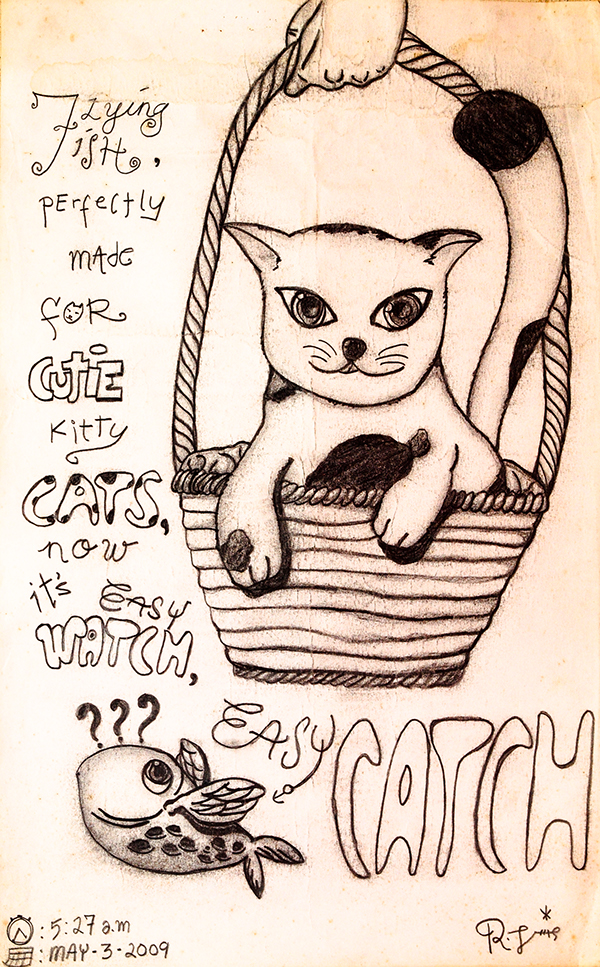 Flying
fisH,
pErfectly
mAde
foR
CUTiE
Kitty
CATS,
now
it's EASy
WATCH,
???
EASy CATCH
: 5:27 a.m
: MAY-3-2009